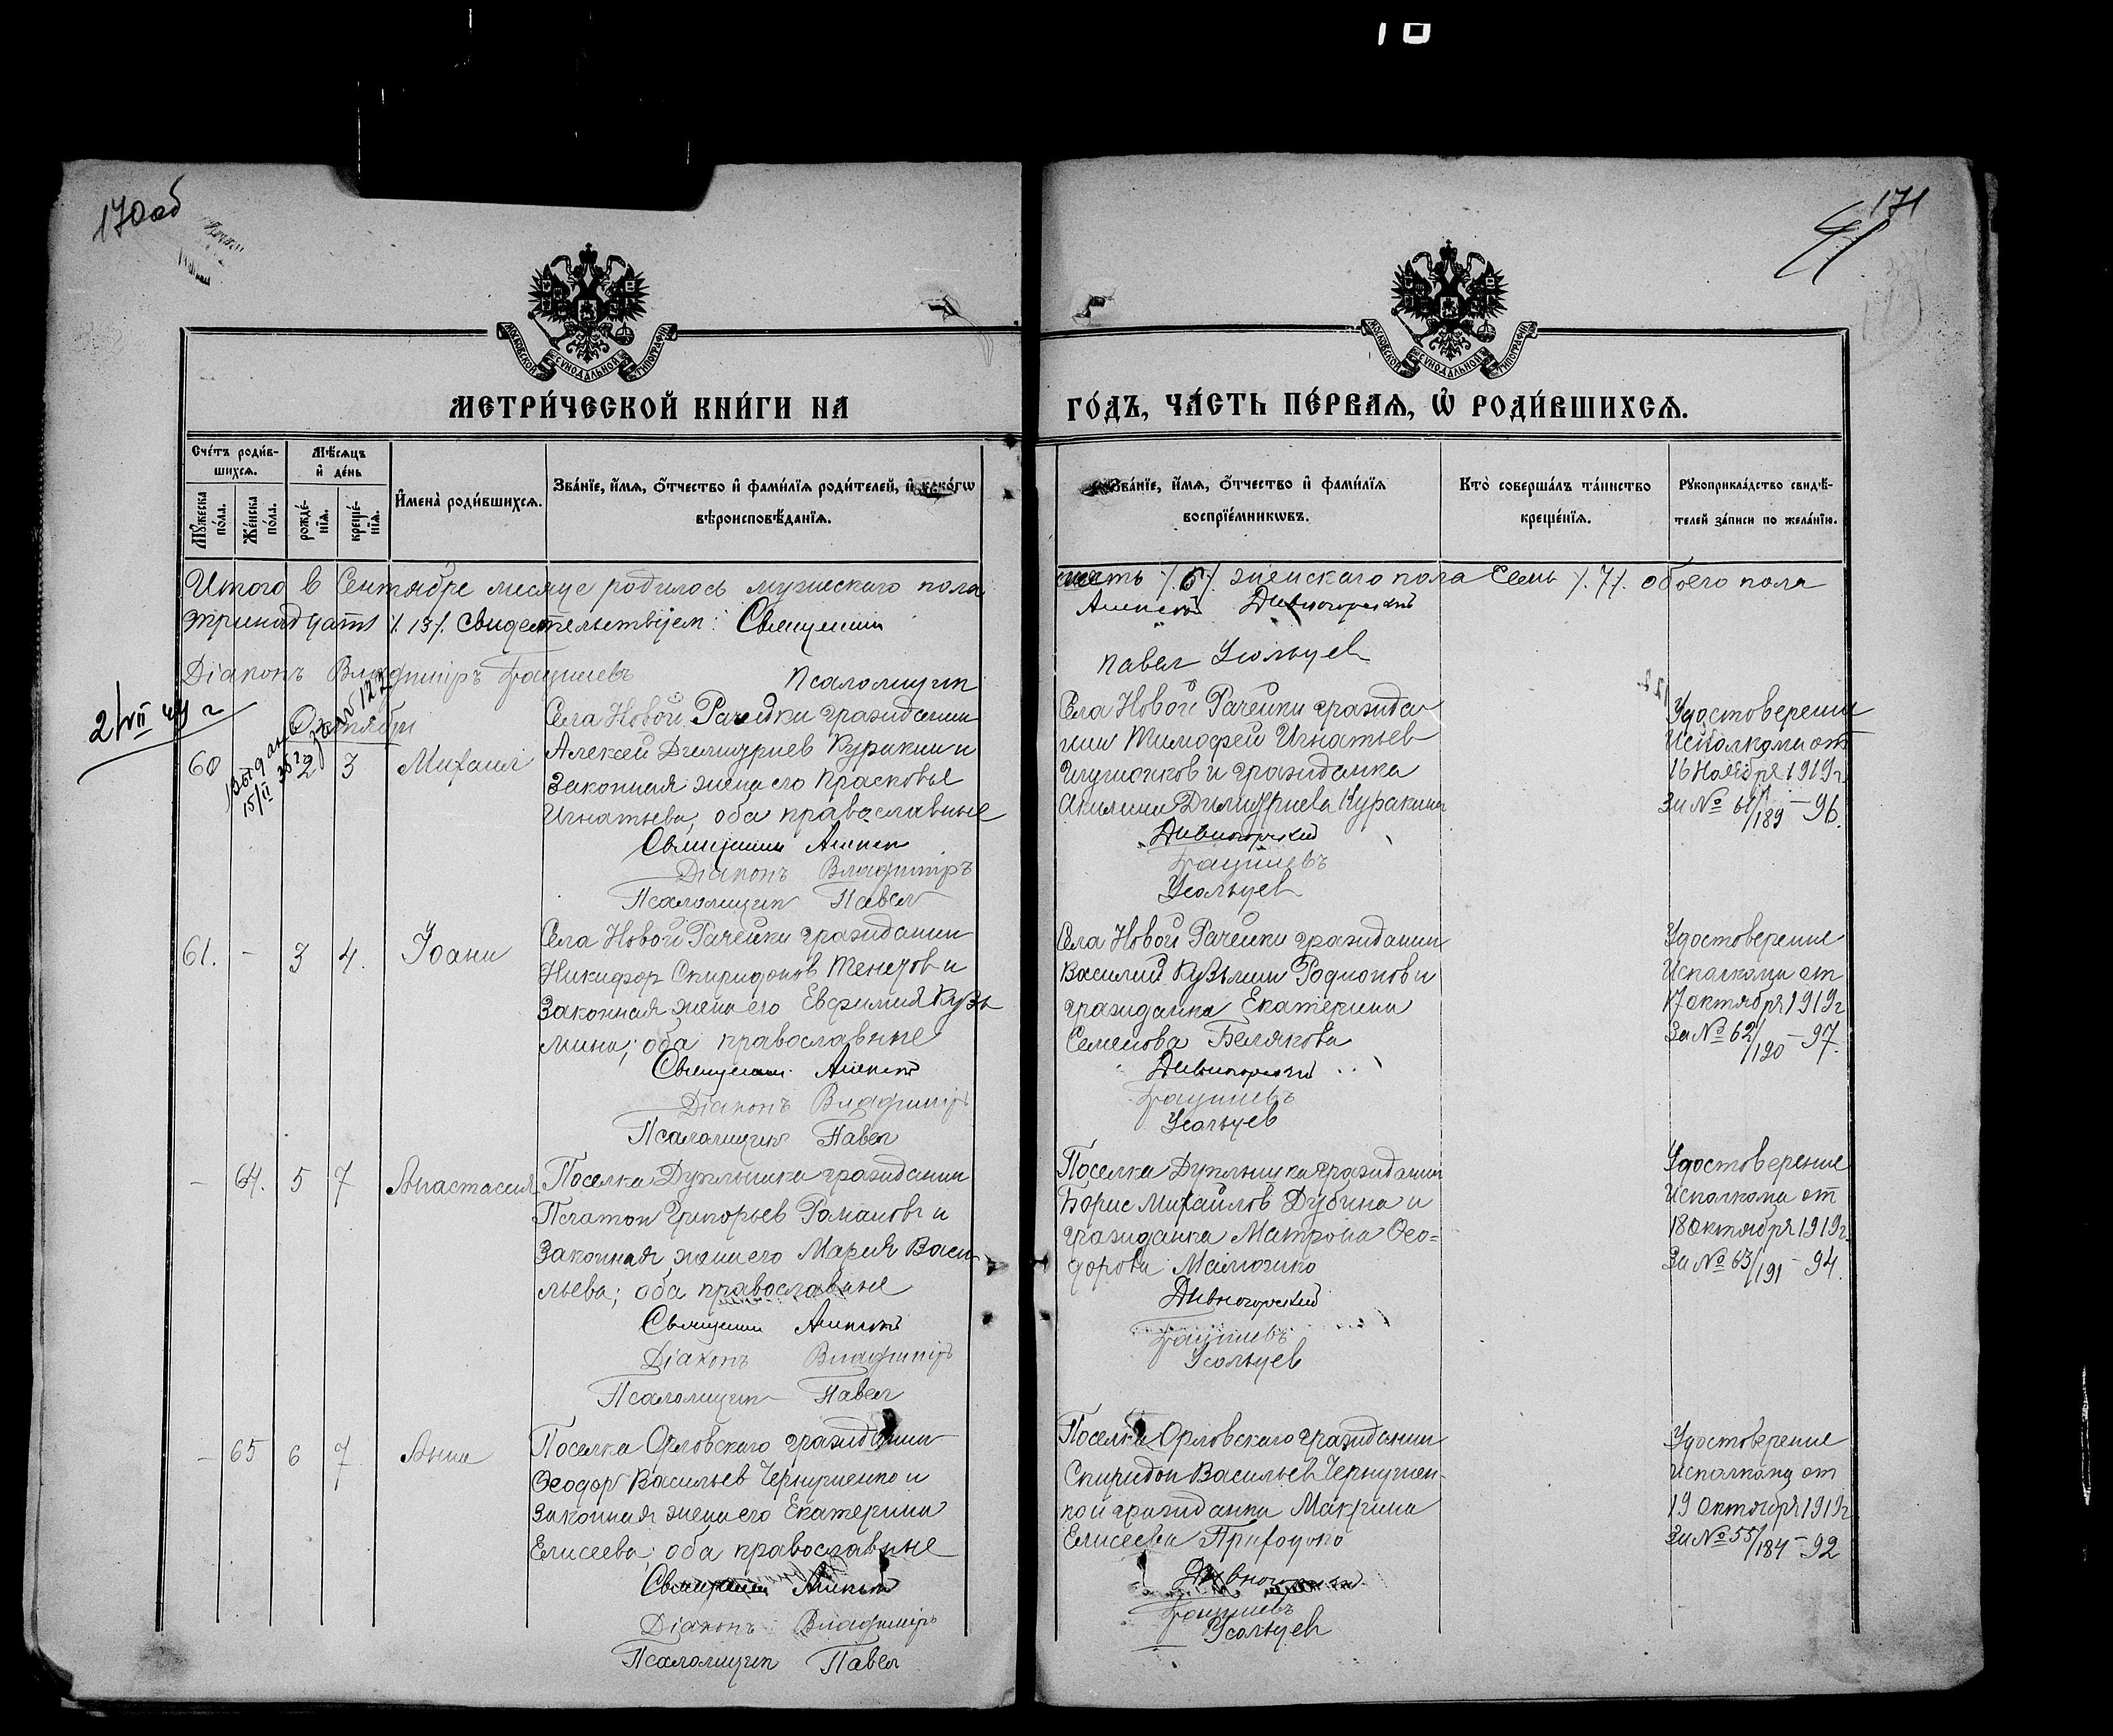 10
170об
171
МОСКОВСКОЙ СѴНОДАЛЬНОЙ ТИПОГРАФІИ
МОСКОВСКОЙ СѴНОДАЛЬНОЙ ТИПОГРАФІИ
МЕТРИ́ЧЕСКОЙ КНИ́ГИ НА
ГО́ДЪ, ЧА́СТЬ ПЕ́РВАѦ, Ѡ҆ РОДИ́ВШИХСѦ.
Сче́тъ роди́в-
шихсѧ.
Мѣ́сѧцъ
и҆ де́нь
Мꙋ́жеска
по́ла.
Же́нска
по́ла.
рожде́-
нїѧ.
креще́-
нїѧ.
И҆мена̀ роди́вшихсѧ.
Зва́нїе, и҆́мѧ, ѻ҆́тчество и҆ фами́лїѧ роди́телей, и҆ како́гѡ
вѣроисповѣ́данїѧ.
Зва́нїе, и҆́мѧ, ѻ҆́тчество и҆ фами́лїѧ
воспрїе́мникѡвъ.
Кто̀ соверша́лъ та́инство
креще́нїѧ.
Рꙋкоприкла́дство свидѣ́-
телей за́писи по жела́нїю.
Итого в Сентябре месяце родилось мужескаго пола
шесть /.6/. женскаго пола семь /.7/. обоего пола
тринадцать /.13/. Свидетельствуем: Священник
Алексей Дивногорский
Діаконъ Владиміръ
Псаломщик
Павел Усольцев
2/VII 44 г
Выдан
15/II
Октябрь
60
2
3
Михаил
Села Новой Рачейки гражданин
Алексей Димитриев Куракин и
законная жена его Прасковья
Игнатьева, оба православные
Священник Алексей
Діаконъ Владиміръ
Псаломщик Павел
Села Новой Рачейки гражда
нин Тимофей Игнатьев
и гражданка
Акилина Димитриева Куракина
Дивногорский
Усольцев
Удостоверение
Исполкома от
16 Ноября 1919 г.
За № 61/189 – 96.
61.
-
3
4.
Іоанн
Села Новой Рачейки гражданин
Никифор Спиридонов и
законная жена его Евфимия Кузь
мина; оба православные
Священник Алексей
Діаконъ Владиміръ
Псаломщик Павел
Села Новой Рачейки гражданин
Василий Кузьмин Родионов и
гражданка Екатерина
Семенова Белякова
Дивногорский
Усольцев
Удостоверение
Исполкома от
17 октября 1919 г
За № 62/190 – 97.
-
64.
5
7
Анастасия
Поселка гражданин
Платон Григорьев Романов и
законная жена его Мария Васи-
льева; оба православные
Священник Алексей
Діаконъ Владиміръ
Псаломщик Павел
Поселка гражданин
Борис Михайлов Дубина и
гражданка Матрона Ѳео=
дорова
Дивногорский
Усольцев
Удостоверение
Исполкома от
18 октября 1919 г.
За № 63/191 – 94.
-
65
6
7
Анна
Поселка Орловскаго гражданин
Ѳеодор Васильев и
законная жена его Екатерина
Елисеева; оба православные
Священник Алексей
Діаконъ Владиміръ
Псаломщик Павел
Поселка Орловскаго гражданин
Спиридон Васильев
и гражданка Макрина
Елисеева Приходько
Дивногорский
Усольцев
Удостоверение
Исполкома от
19 октября 1919 г
За № 55/184 – 92